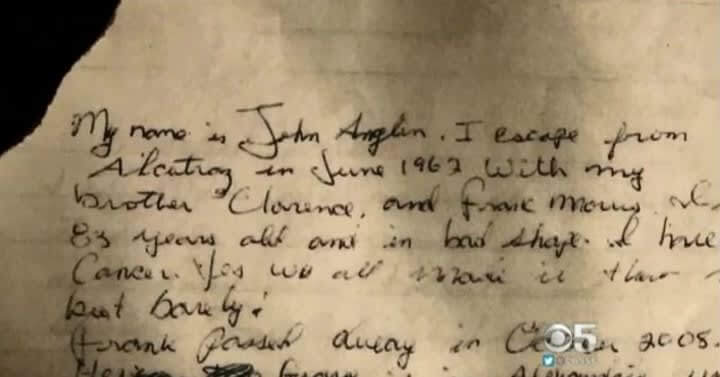 My name is John Anglin. I escape from
Alcatraz in June 1962 With my
brother Clarence, and Frank Morris. I
83 years old and in bad shape. I have
Cancer. Yes we all made it that
but barely!
Frank Passed away in 2008.
is in Alexandria
5